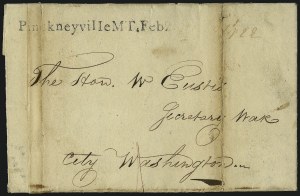 PinckneyvilleMT,Feb.
The Hon. W Eustis
Secretary War
City Washington